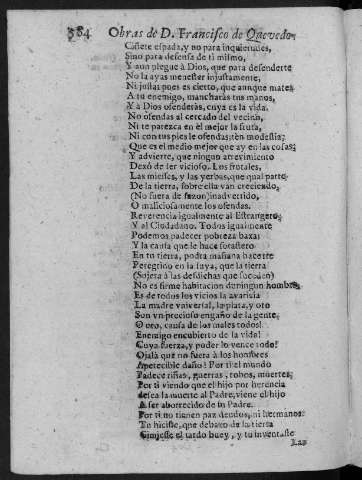 384 Obras de D. Francisco de Quevedo,
Ciñete espada, y no para inquietudes,
Sino para defensa de ti mismo,
Y aun plegue à Dios, que para defenderte
No la ayas menester injustamente,
Ni justa; pues es cierto, que aunque mates
A tu enemigo, mancharàs tus manos,
Y à Dios ofenderàs, cuya es la vida.
No ofendas al cercado del vecino,
Ni te parezca en èl mejor la fruta,
Ni con tus pies le ofendas; ten modestia;
Que es el medio mejor que ay en las cosas;
Y advierte, que ningun atrevimiento
Dexò de ser vicioso. Los frutales,
Las miesses, y las yerbas, que qual parto
De la tierra, sobre ella van creciendo,
(No fuera de sazon) inadvertido,
O maliciosamente los ofendas.
Reverencia igualmente al Estrangero,
Y al Ciudadano. Todos igualmente
Podemos padecer pobreza baxa;
Y la causa que le hace forastero
En tu tierra, podrà mañana hacerte
Peregrino en la suya, que la tierra
(Sujeta à las desdichas que suceden)
No es firme habitacion de ningun hombre.
Es de todos los vicios la avaricia
La madre universal, la plata, y oro
Son un precioso engaño de la gente.
O oro, causa de los males todos!
Enemigo encubierto de la vida!
Cuya fuerza, y poder lo vence todo!
Ojalà que no fuera à los hombres
Apetecible daño! Por ti el mundo
Padece riñas, guerras, robos, muertes;
Por ti viendo que el hijo por herencia
desea la muerte al Padre, viene el hijo
A ser aborrecido de su Padre.
Por ti no tienen paz deudos, ni hermanos.
Tu hiciste, que debaxo de la tierra
Gimiesse el tardo buey, y tu inventaste
Las